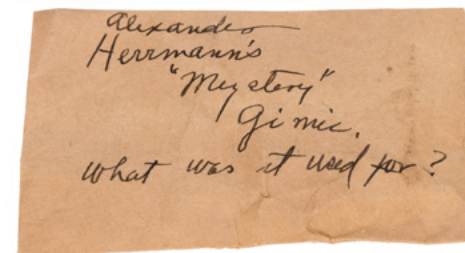 Alexander
Herrmann's
"Mystery"
Gimic.
what was it used for?